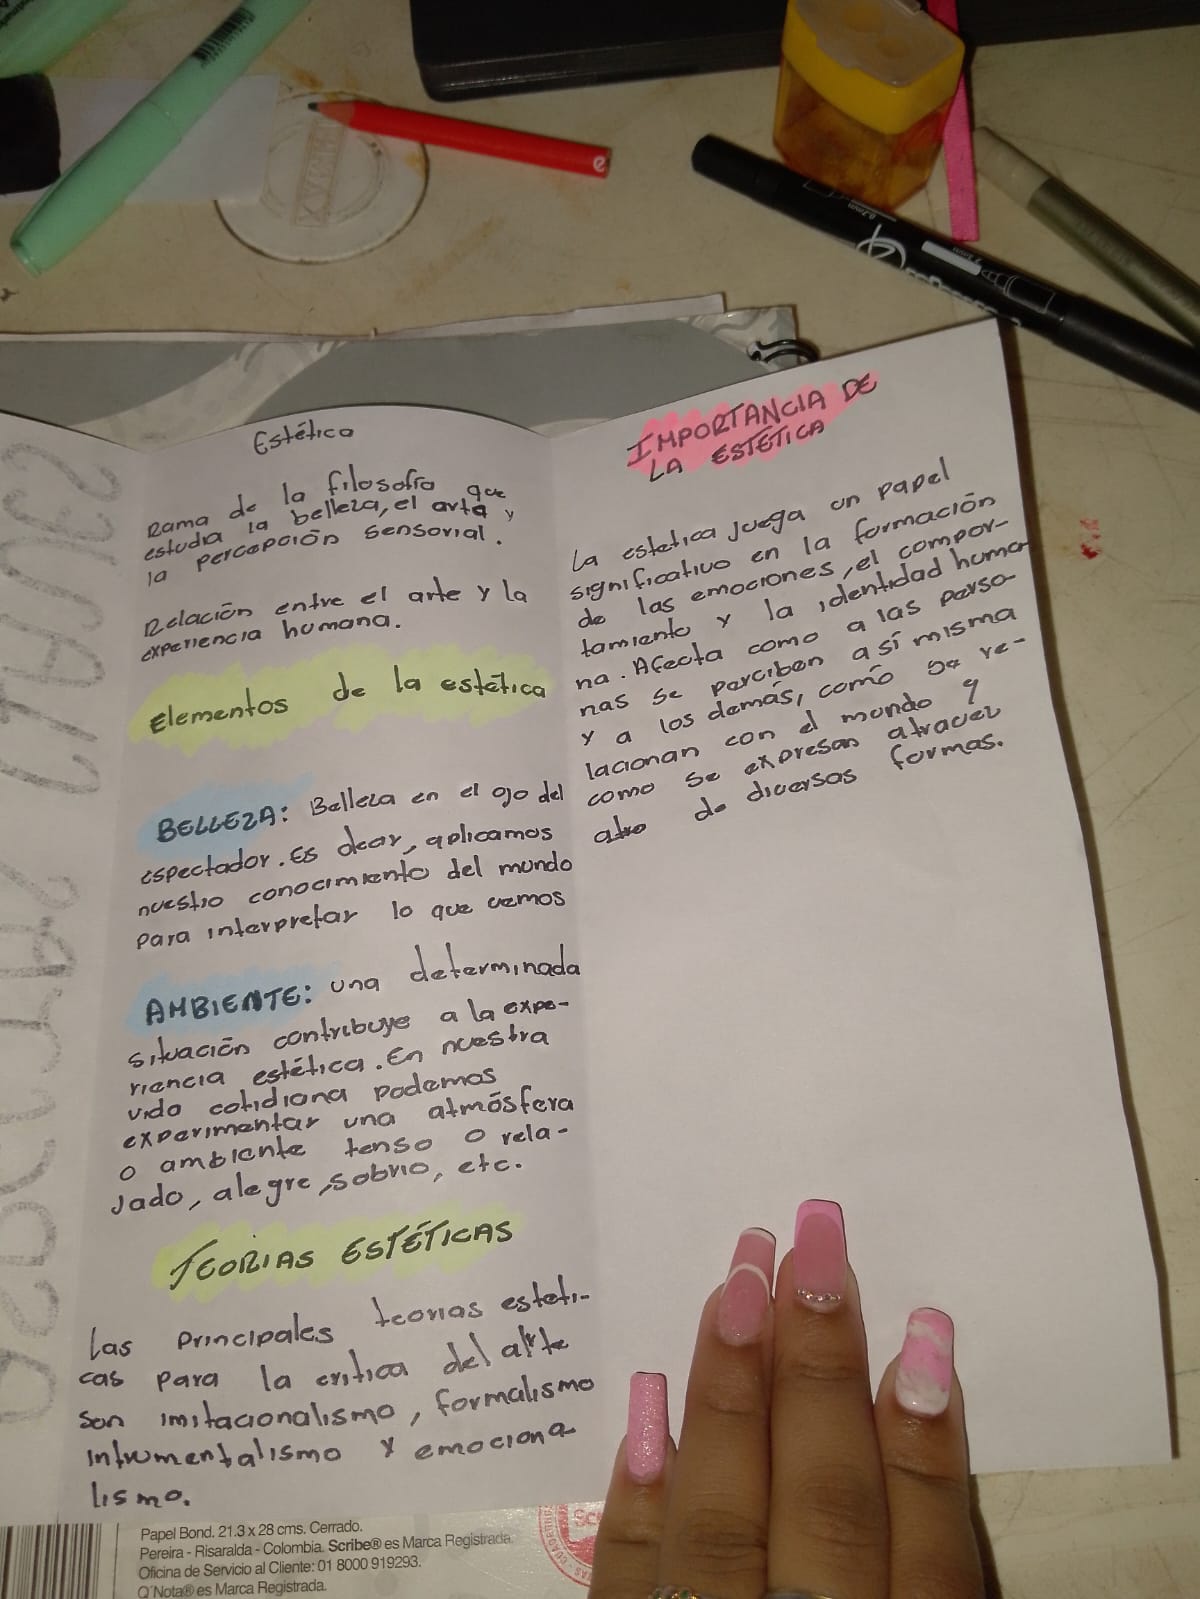 Estética
Rama de la filosofía que
estudia la belleza, el arte y
la percepción sensorial.
Relación entre el arte y la
experiencia humana.
Elementos de la estética
BELLEZA: Belleza en el ojo del
espectador. Es decir, aplicamos
nuestro conocimiento del mundo
para interpretar lo que vemos
AMBIENTE: una determinada
situación contribuye a la expe-
riencia estética. En nuestra
vida cotidiana podemos
experimentar una atmósfera
o ambiente tenso o rela-
jado, alegre, sobrio, etc.
TEORIAS ESTÉTICAS
Las principales teorias esteti-
cas para la critica del arte
son imitacionalismo, formalismo
intrumentalismo y emociona
lismo.
IMPORTANCIA DE
LA ESTÉTICA
La estetica juega un papel
significativo en la formación
de las emociones, el compor-
tamiento y la identidad huma
na. Afecta como a las perso-
nas se perciben así misma
y a los demás, como se re-
lacionan con el mundo y
como se expresan atravez
de diversas formas.
Papel Bond. 21.3 x 28 cms. Cerrado.
Pereira - Risaralda - Colombia. Scribe® es Marca Registrada.
Oficina de Servicio al Cliente: 01 8000 919293.
Q'Nota® es Marca Registrada.